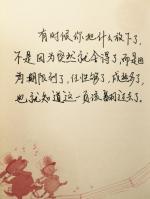 有时候你把什么放下了,
不是因为突然就舍得了,而是因
为期限到了,任性够了,成熟多了,
也就知道这一页该翻过去了。